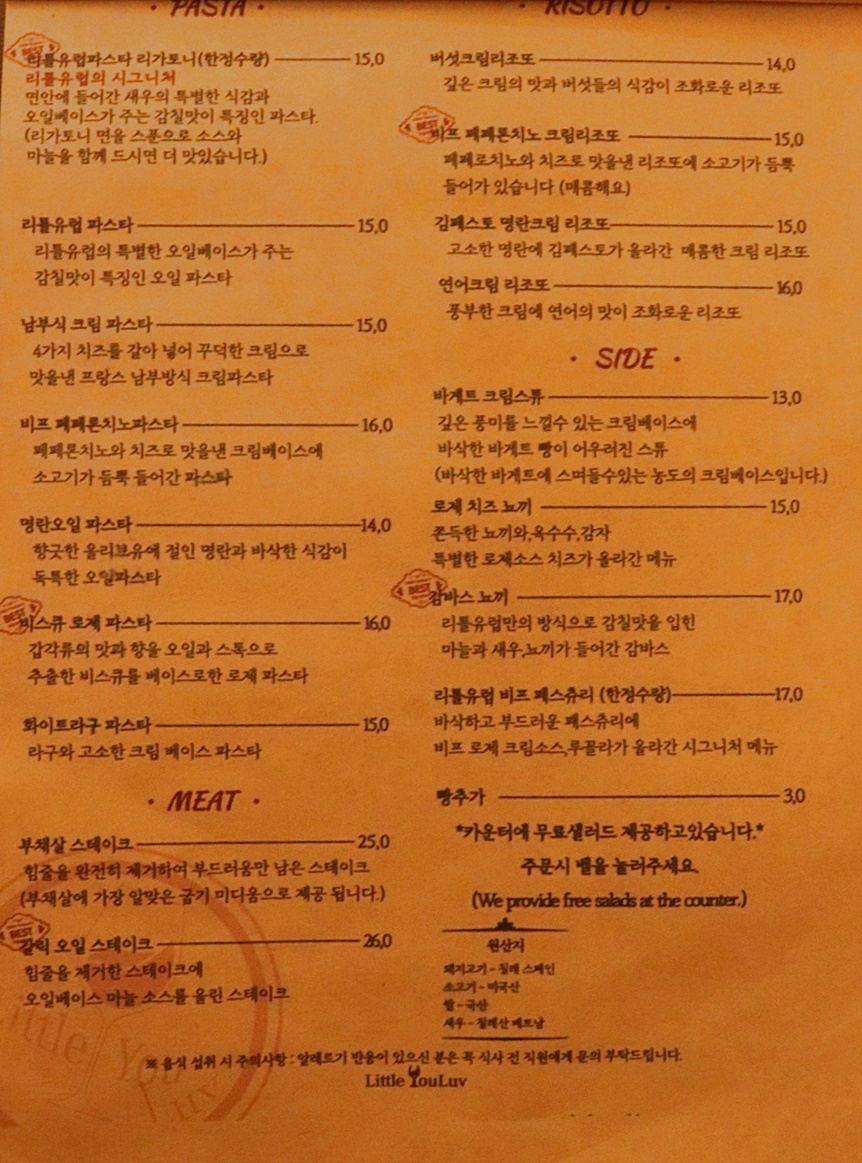 · PASTA ·
BEST
리틀유럽파스타 리가토니(한정수량) 15,0
리틀유럽의 시그니처
면안에 들어간 새우의 특별한 식감과
오일베이스가 주는 감칠맛이 특징인 파스타.
(리가토니 면을 스푼으로 소스와
마늘을 함께 드시면 더 맛있습니다.)
리틀유럽 파스타 15,0
리틀유럽의 특별한 오일베이스가 주는
감칠맛이 특징인 오일 파스타
남부식 크림 파스타 15,0
4가지 치즈를 갈아 넣어 꾸덕한 크림으로
맛을낸 프랑스 남부방식 크림파스타
비프 페페론치노파스타 16,0
페페론치노와 치즈로 맛을낸 크림베이스에
소고기가 듬뿍 들어간 파스타
명란오일 파스타 14,0
향긋한 올리브유에 절인 명란과 바삭한 식감이
독특한 오일파스타
BEST
비스큐 로제 파스타 16,0
갑각류의 맛과 향을 오일과 스톡으로
추출한 비스큐를 베이스로한 로제 파스타
화이트라구 파스타 15,0
라구와 고소한 크림 베이스 파스타
· MEAT ·
부채살 스테이크 25,0
힘줄을 완전히 제거하여 부드러움만 남은 스테이크
(부채살에 가장 알맞은 굽기 미디움으로 제공 됩니다.)
BEST
갈릭 오일 스테이크 26,0
힘줄을 제거한 스테이크에
오일베이스 마늘 소스를 올린 스테이크
Little You Luv
· RISOTTO ·
버섯크림리조또 14,0
깊은 크림의 맛과 버섯들의 식감이 조화로운 리조또
BEST
비프 페페론치노 크림리조또 15,0
페페로치노와 치즈로 맛을낸 리조또에 소고기가 듬뿍
들어가 있습니다 (매콤해요)
김페스토 명란크림 리조또 15,0
고소한 명란에 김페스토가 올라간 매콤한 크림 리조또
연어크림 리조또 16,0
풍부한 크림에 연어의 맛이 조화로운 리조또
· SIDE ·
바게트 크림스튜 13,0
깊은 풍미를 느낄수 있는 크림베이스에
바삭한 바게트 빵이 어우러진 스튜
(바삭한 바게트에 스며들수있는 농도의 크림베이스입니다.)
로제 치즈 뇨끼 15,0
쫀득한 뇨끼와,옥수수,감자
특별한 로제소스 치즈가 올라간 메뉴
BEST
감바스 뇨끼 17,0
리틀유럽만의 방식으로 감칠맛을 입힌
마늘과 새우,뇨끼가 들어간 감바스
리틀유럽 비프 페스츄리 (한정수량) 17,0
바삭하고 부드러운 페스츄리에
비프 로제 크림소스,루꼴라가 올라간 시그니처 메뉴
빵추가 3,0
*카운터에 무료샐러드 제공하고있습니다.*
주문시 벨을 눌러주세요.
(We provide free salads at the counter.)
원산지
돼지고기 - 칠레 스페인
소고기 - 미국산
쌀 - 국산
새우 - 칠레산 베트남
※ 음식 섭취 시 주의사항 : 알레르기 반응이 있으신 분은 꼭 식사 전 직원에게 문의 부탁드립니다.
Little YouLuv